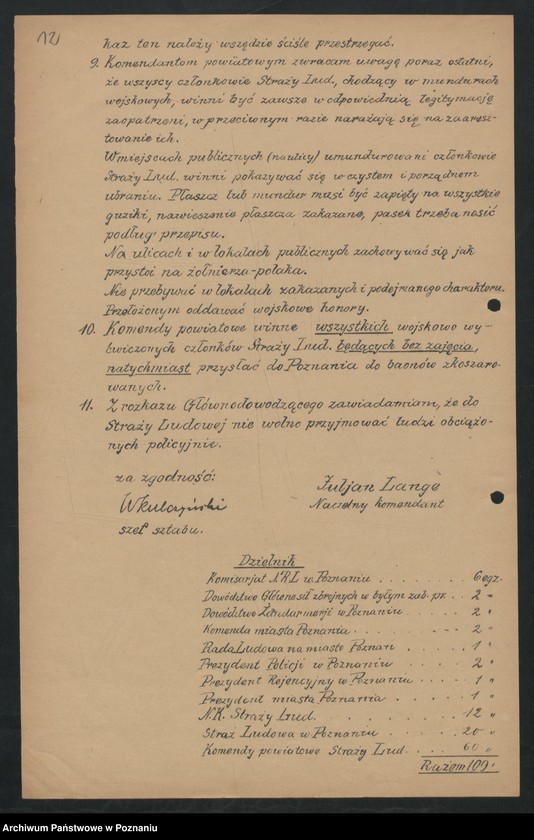 12
kaz ten należy wszędzie ściśle przestrzegać.
9. Komendantom powiatowym zwracam uwagę poraz ostatni,
że wszyscy członkowie Straży Lud., chodzący w mundurach
wojskowych, winni być zawsze w odpowiednią legitymację
zaopatrzeni, w przeciwnym razie narażają się na zaaresz-
towanie ich.
W miejscach publicznych (na ulicy) umundurowani członkowie
Straży Lud. winni pokazywać się w czystem i porządnem
ubraniu. Płaszcz lub mundur musi być zapięty na wszystkie
guziki, nawieszenie płaszcza zakazane, pasek trzeba nosić
podług przepisu.
Na ulicach i w lokalach publicznych zachowywać się jak
przystoi na żołnierza-polaka.
Nie przebywać w lokalach zakazanych i podejrzanego charakteru.
Przełożonym oddawać wojskowe honory.
10. Komendy powiatowe winne wszystkich wojskowo wy-
ćwiczonych członków Straży Lud. będących bez zajęcia,
natychmiast przysłać do Poznania do baonów zkoszaro-
wanych.
11. Z rozkazu Głównodowodzącego zawiadamiam, że do
Straży Ludowej nie wolno przyjmować ludzi obciążo-
nych policyjnie.
za zgodność:
Juljan Lange
WKulczyński
Naczelny komendant
szef sztabu.
Dzielnik
Komisarjat N.R.L w Poznaniu . . . . . . . . 6 egz.
Dowództwo Główne sił zbrojnych w byłym zab. pr. . . 2 "
Dowództwo Żandarmerji w Poznaniu . . . . . 2 "
Komenda miasta Poznania . . . . . . 2 "
Rada Ludowa na miasto Poznań . . . . . 1 "
Prezydent Policji w Poznaniu . . . . . 2 "
Prezydent Rejencyjny w Poznaniu . . . . 1 "
Prezydent miasta Poznania . . . . . 1 "
N.K. Straży Lud. . . . . . . 12 "
Straż Ludowa w Poznaniu . . . . . 20 "
Komendy powiatowe Straży Lud. . . . . 60 "
Razem 109 "
Archiwum Państwowe w Poznaniu